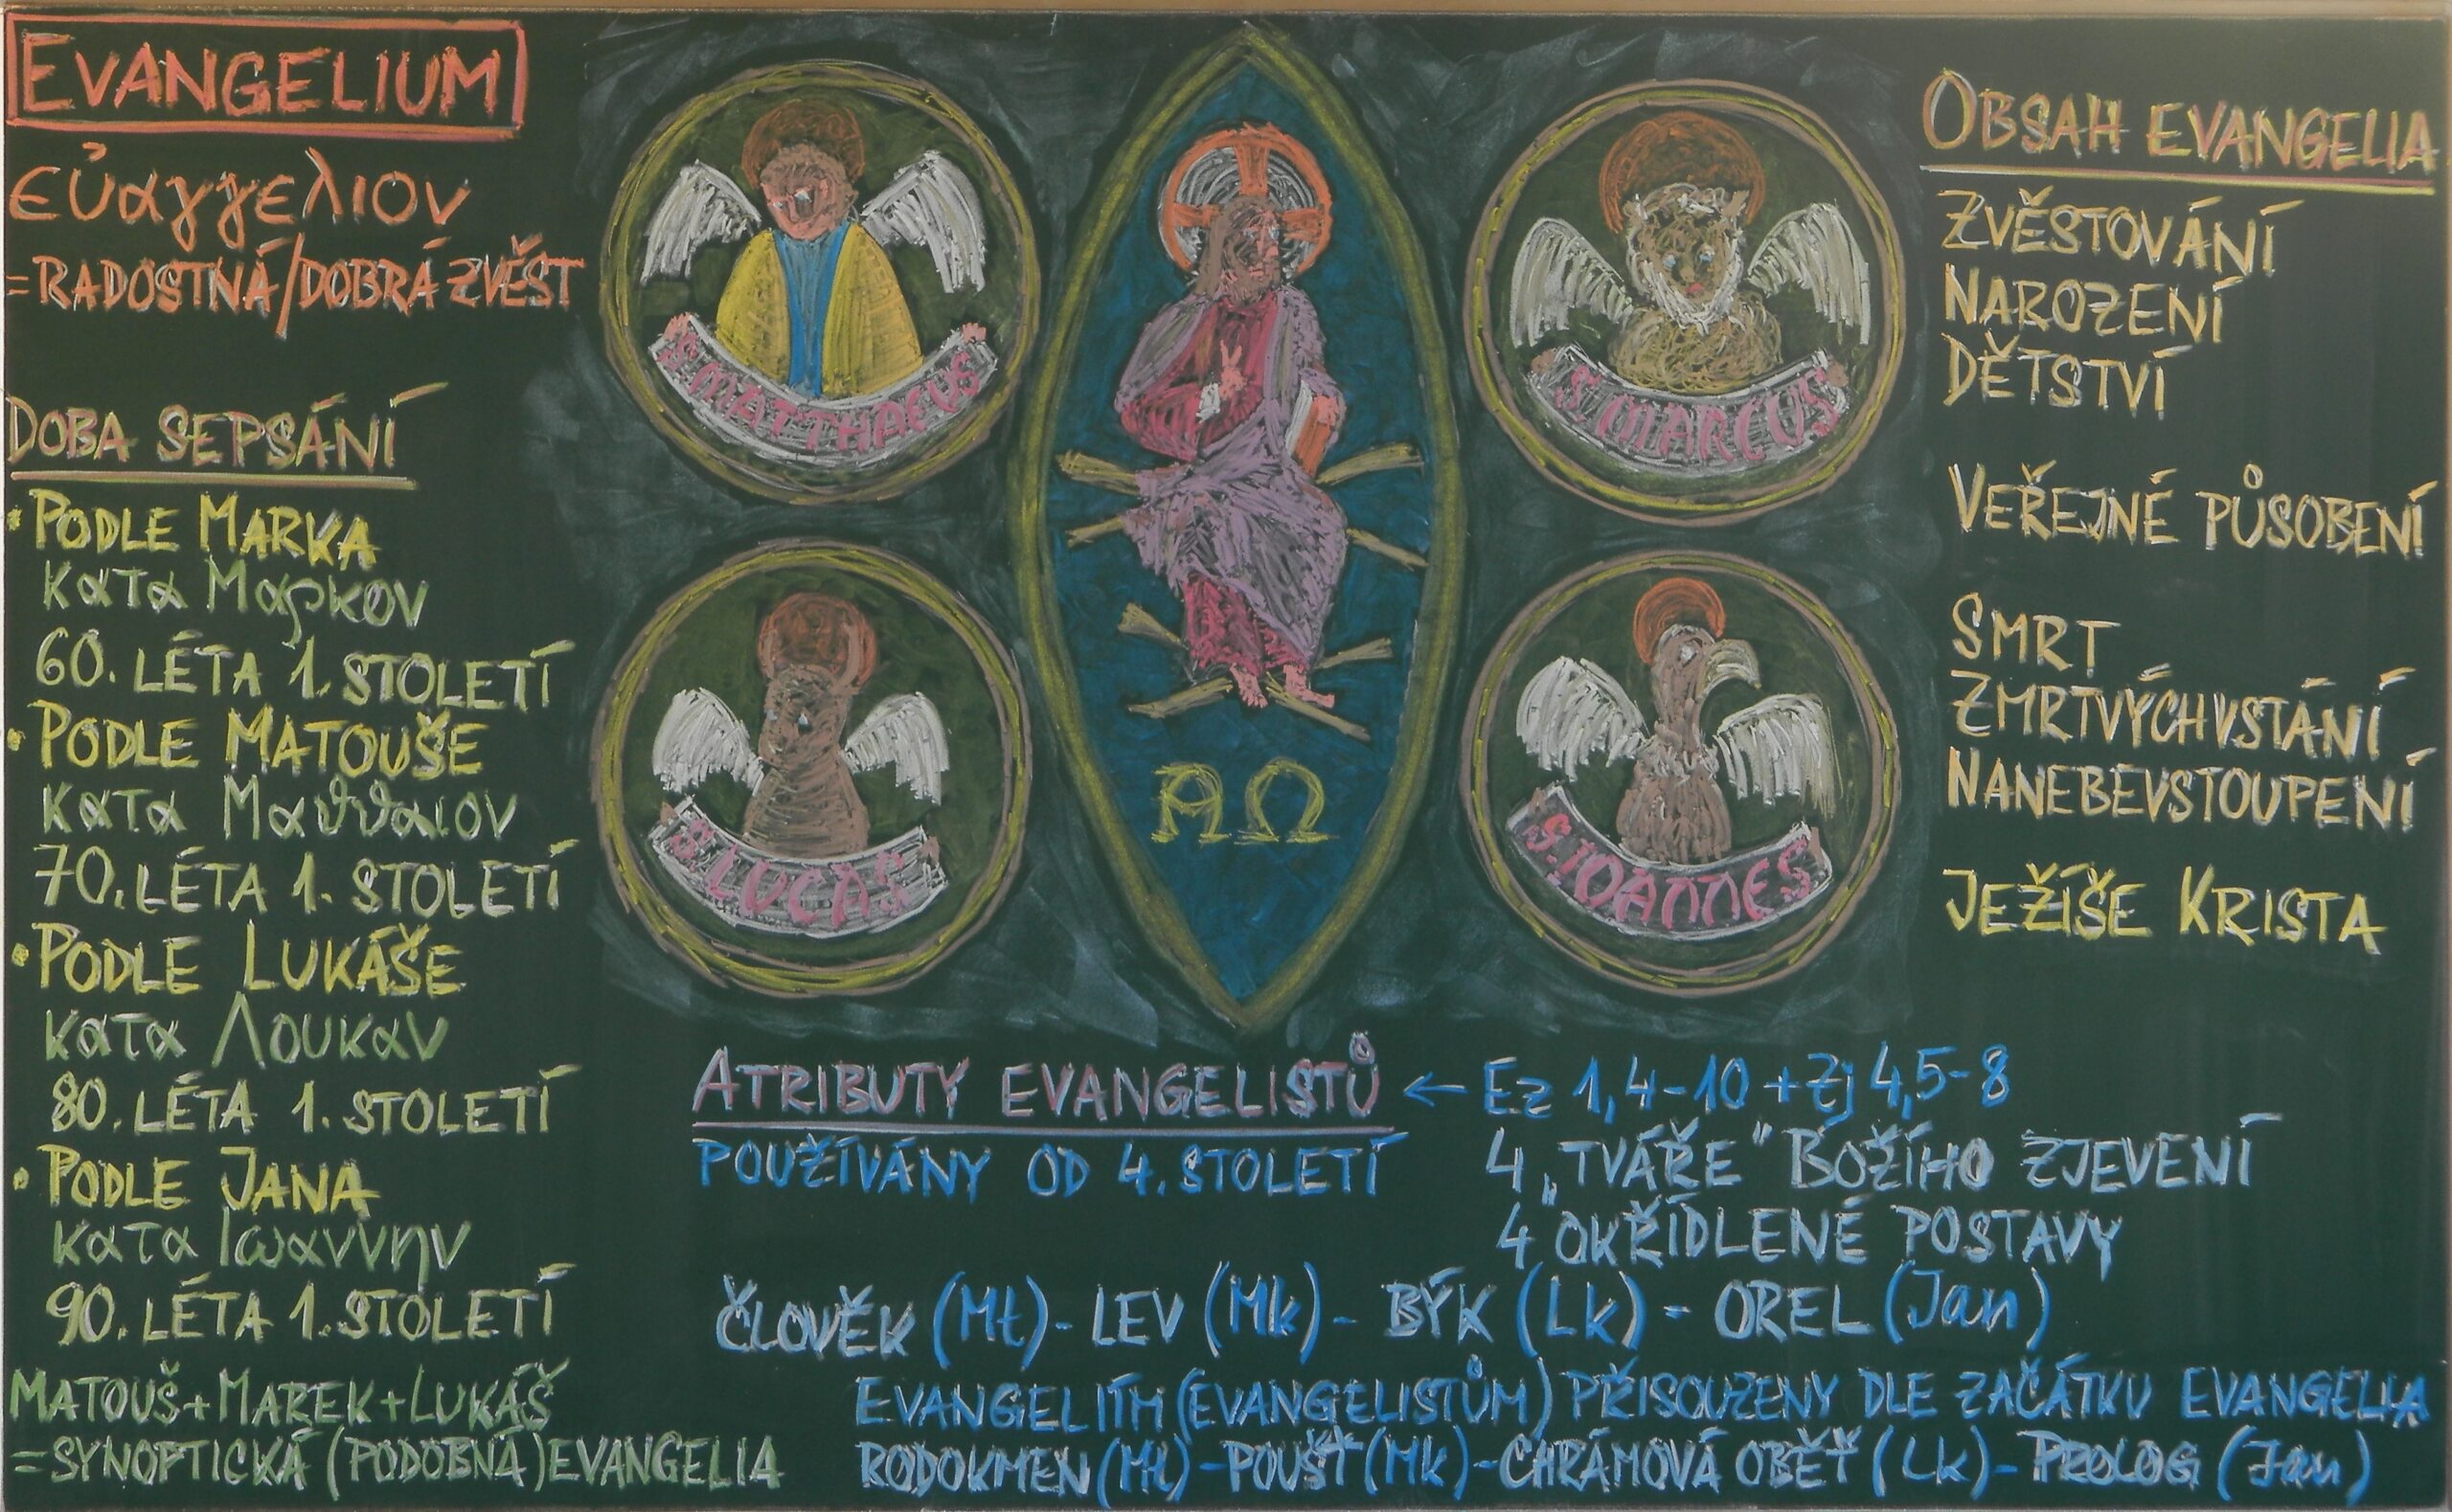 EVANGELIUM
εὐαγγελιον
=RADOSTNÁ/DOBRÁ ZVĚST
DOBA SEPSÁNÍ
• PODLE MARKA
κατα Μαρκον
60. LÉTA 1. STOLETÍ
• PODLE MATOUŠE
κατα Μαϑϑαιον
70. LÉTA 1. STOLETÍ
• PODLE LUKÁŠE
κατα Λουκαν
80. LÉTA 1. STOLETÍ
• PODLE JANA
κατα Ιωαννην
90. LÉTA 1. STOLETÍ
MATOUŠ+MAREK+LUKÁŠ
=SYNOPTICKÁ (PODOBNÁ) EVANGELIA
S. MATTHAEUS
S. MARCUS
S. LUCAS
S. IOANNES
A Ω
ATRIBUTY EVANGELISTŮ ← Ez 1,4-10 + Zj 4,5-8
POUŽÍVÁNY OD 4. STOLETÍ
4 „TVÁŘE" BOŽÍHO ZJEVENÍ
4 OKŘÍDLENÉ POSTAVY
ČLOVĚK (Mt) - LEV (Mk) - BÝK (Lk) - OREL (Jan)
EVANGELIÍM (EVANGELISTŮM) PŘISOUZENY DLE ZAČÁTKU EVANGELIA
RODOKMEN (Mt) - POUŠŤ (Mk) - CHRÁMOVÁ OBĚŤ (Lk) - PROLOG (Jan)
OBSAH EVANGELIA
ZVĚSTOVÁNÍ
NAROZENÍ
DĚTSTVÍ
VEŘEJNÉ PŮSOBENÍ
SMRT
ZMRTVÝCHVSTÁNÍ
NANEBEVSTOUPENÍ
JEŽÍŠE KRISTA